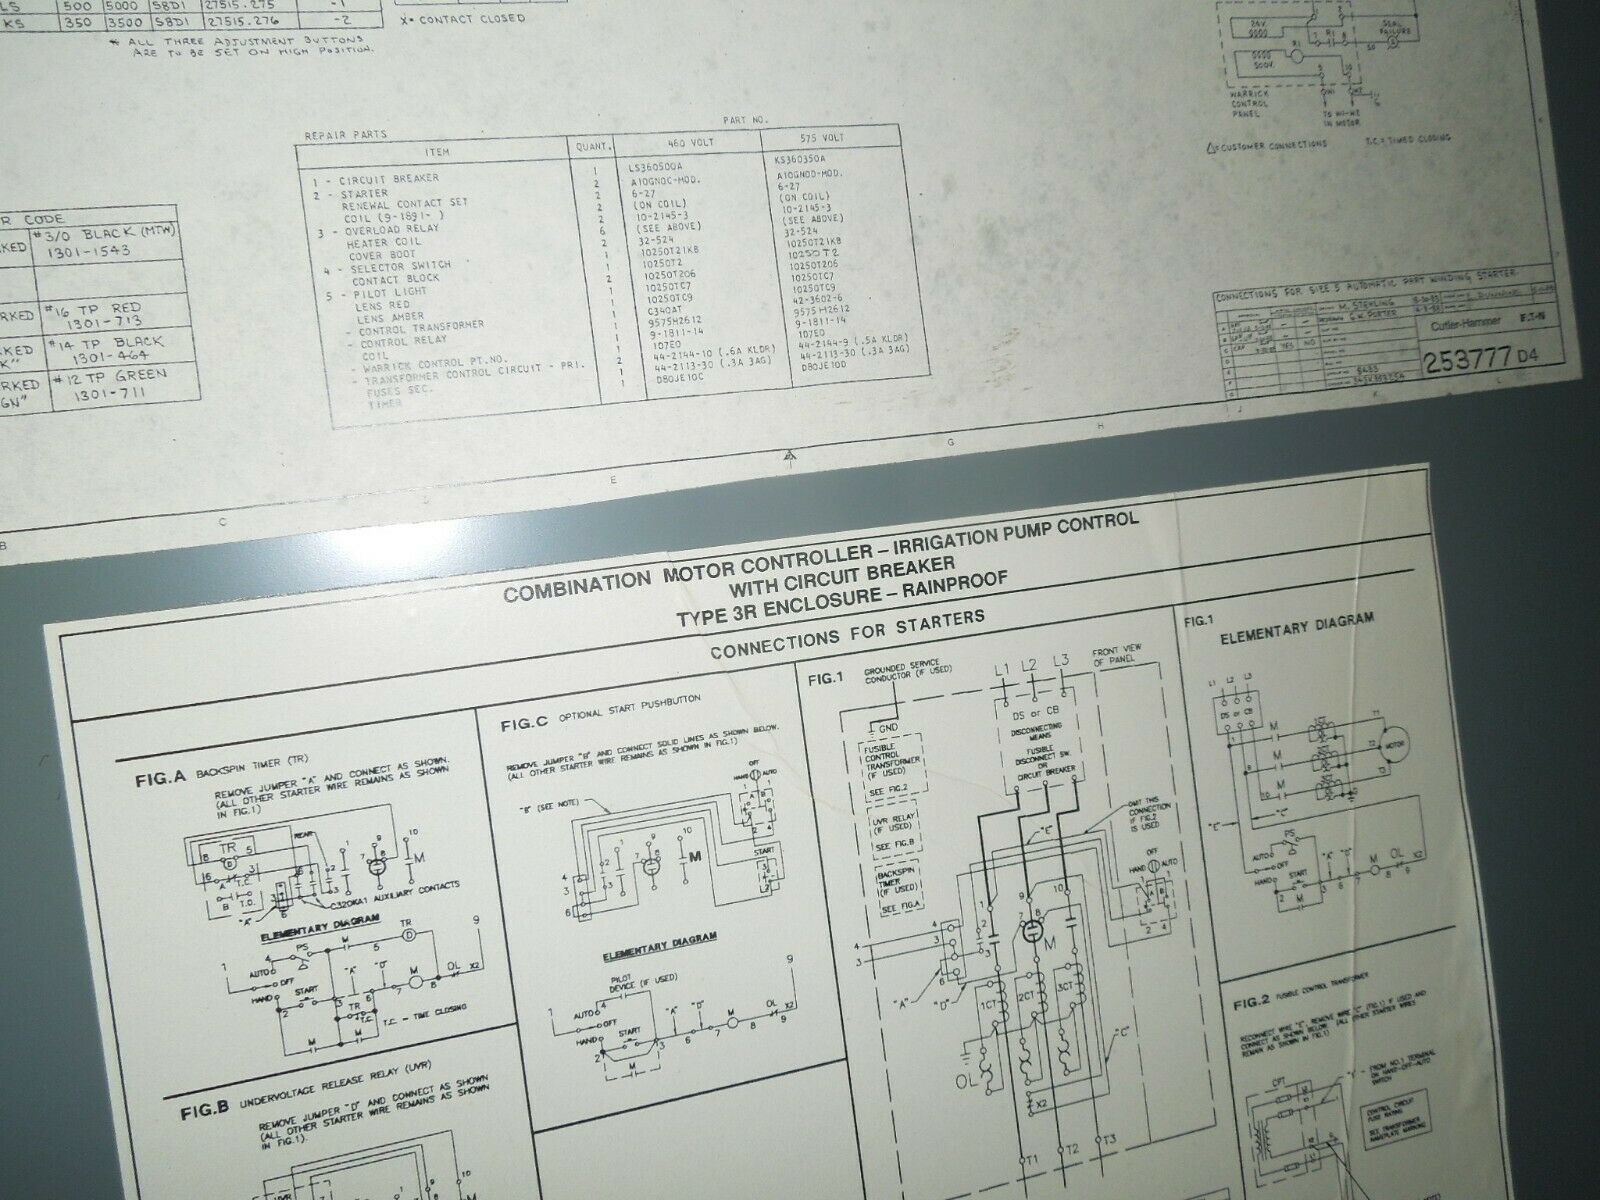 LS 500 5000 S8D1 27515.275 -1
KS 350 3500 S8D1 27515.276 -2
* ALL THREE ADJUSTMENT BUTTONS
ARE TO BE SET ON HIGH POSITION.
X = CONTACT CLOSED
24V.
500V.
R1
SEAL
FAILURE
WARRICK
CONTROL
PANEL
TO W1-W2
IN MOTOR
CUSTOMER CONNECTIONS T.C.= TIMED CLOSING
REPAIR PARTS
PART NO.
ITEM QUANT. 460 VOLT 575 VOLT
1 - CIRCUIT BREAKER 1 LS360500A KS360350A
2 - STARTER 2 A10GNOC-MOD. A10GNOD-MOD.
RENEWAL CONTACT SET 2 6-27 6-27
COIL (9-1891- ) 2 (ON COIL) (ON COIL)
3 - OVERLOAD RELAY 2 10-2145-3 10-2145-3
HEATER COIL 6 (SEE ABOVE) (SEE ABOVE)
COVER BOOT 2 32-524 32-524
4 - SELECTOR SWITCH 1 10250T21KB 10250T21KB
CONTACT BLOCK 1 10250T2 10250T2
5 - PILOT LIGHT 2 10250T206 10250T206
LENS RED 1 10250TC7 10250TC7
LENS AMBER 1 10250TC9 10250TC9
- CONTROL TRANSFORMER 1 C340AT 42-3602-6
- CONTROL RELAY 1 9575H2612 9575H2612
COIL 1 9-1811-14 9-1811-14
- WARRICK CONTROL PT.NO. 1 107E0 107E0
- TRANSFORMER CONTROL CIRCUIT - PRI. 2 44-2144-10 (.6A KLDR) 44-2144-9 (.5A KLDR)
FUSES SEC. 1 44-2113-30 (.3A 3AG) 44-2113-30 (.3A 3AG)
TIMER 1 D80JE10C D80JE10D
R CODE
KED #3/0 BLACK (MTW)
1301-1543
RKED #16 TP RED
1301-713
KED #14 TP BLACK
K" 1301-464
RKED #12 TP GREEN
GN" 1301-711
CONNECTIONS FOR SIZE 5 AUTOMATIC PART WINDING STARTER
M. STERLING
G.W. PORTER
YES NO
Cutler-Hammer
253777 D4
B C E G H
COMBINATION MOTOR CONTROLLER – IRRIGATION PUMP CONTROL
WITH CIRCUIT BREAKER
TYPE 3R ENCLOSURE – RAINPROOF
CONNECTIONS FOR STARTERS
FIG.A BACKSPIN TIMER (TR)
REMOVE JUMPER "A" AND CONNECT AS SHOWN.
(ALL OTHER STARTER WIRE REMAINS AS SHOWN
IN FIG.1)
TR
REAR
T.C.
T.O.
M
"A"
C320KA1 AUXILIARY CONTACTS
ELEMENTARY DIAGRAM
PS
AUTO
OFF
HAND
START
M
TR
"A" "D" M OL X2
TR
T.C.
M
T.C. - TIME CLOSING
FIG.B UNDERVOLTAGE RELEASE RELAY (UVR)
REMOVE JUMPER "D" AND CONNECT AS SHOWN
(ALL OTHER STARTER WIRE REMAINS AS SHOWN
IN FIG.1).
UVR
10
FIG.C OPTIONAL START PUSHBUTTON
REMOVE JUMPER "B" AND CONNECT SOLID LINES AS SHOWN BELOW.
(ALL OTHER STARTER WIRE REMAINS AS SHOWN IN FIG.1)
"B" (SEE NOTE)
OFF
HAND AUTO
START
M
ELEMENTARY DIAGRAM
PILOT
DEVICE (IF USED)
AUTO
OFF
HAND
START
"A" "D" M OL X2
M
FIG.1
GROUNDED SERVICE
CONDUCTOR (IF USED)
L1 L2 L3
FRONT VIEW
OF PANEL
GND
DS or CB
DISCONNECTING
MEANS
FUSIBLE
DISCONNECT SW.
OR
CIRCUIT BREAKER
FUSIBLE
CONTROL
TRANSFORMER
(IF USED)
SEE FIG.2
UVR RELAY
(IF USED)
SEE FIG.B
BACKSPIN
TIMER
(IF USED)
SEE FIG.A
OMIT THIS
CONNECTION
IF FIG.2
IS USED
"C"
OFF
HAND AUTO
M
"A"
"D"
1CT 2CT 3CT
"C"
OL
X2
T1 T2 T3
FIG.1
ELEMENTARY DIAGRAM
L1 L2 L3
DS or CB
M
M
M
T1
T2
T3
MOTOR
"C" "C"
PS
AUTO
OFF
HAND
START
"A" "D" M OL X2
M
FIG.2 FUSIBLE CONTROL TRANSFORMER
RECONNECT WIRE "E", REMOVE WIRE "C" (FIG.1) IF USED AND
CONNECT AS SHOWN BELOW. (ALL OTHER STARTER WIRES
REMAIN AS SHOWN IN FIG.1)
CPT
FROM NO.1 TERMINAL
ON HAND-OFF-AUTO
SWITCH
CONTROL CIRCUIT
FUSE RATING
SEE TRANSFORMER
NAMEPLATE MARKING